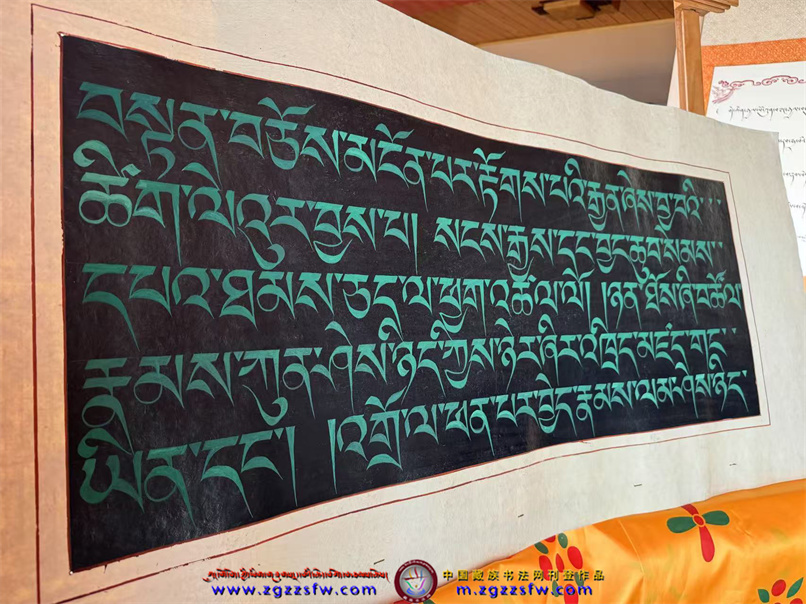 བསྟན་བཅོས་མངོན་པར་རྟོགས་པའི་རྒྱན་ཞེས་བྱ་བའི་
ཚིག་ལེའུར་བྱས་པ། སངས་རྒྱས་དང་བྱང་ཆུབ་སེམས་
དཔའ་ཐམས་ཅད་ལ་ཕྱག་འཚལ་ལོ། །ཉན་ཐོས་ཞི་བ་ཚོལ་
རྣམས་ཀུན་ཤེས་ཉིད་ཀྱིས་ཉེར་ཞིར་འཁྲིད་མཛད་གང་
ཡིན་དང་། །འགྲོ་ལ་ཕན་པར་བྱེད་རྣམས་ལམ་ཤེས་ཉིད་
中国藏族书法网刊登作品
www.zgzzsfw.com m.zgzzsfw.com